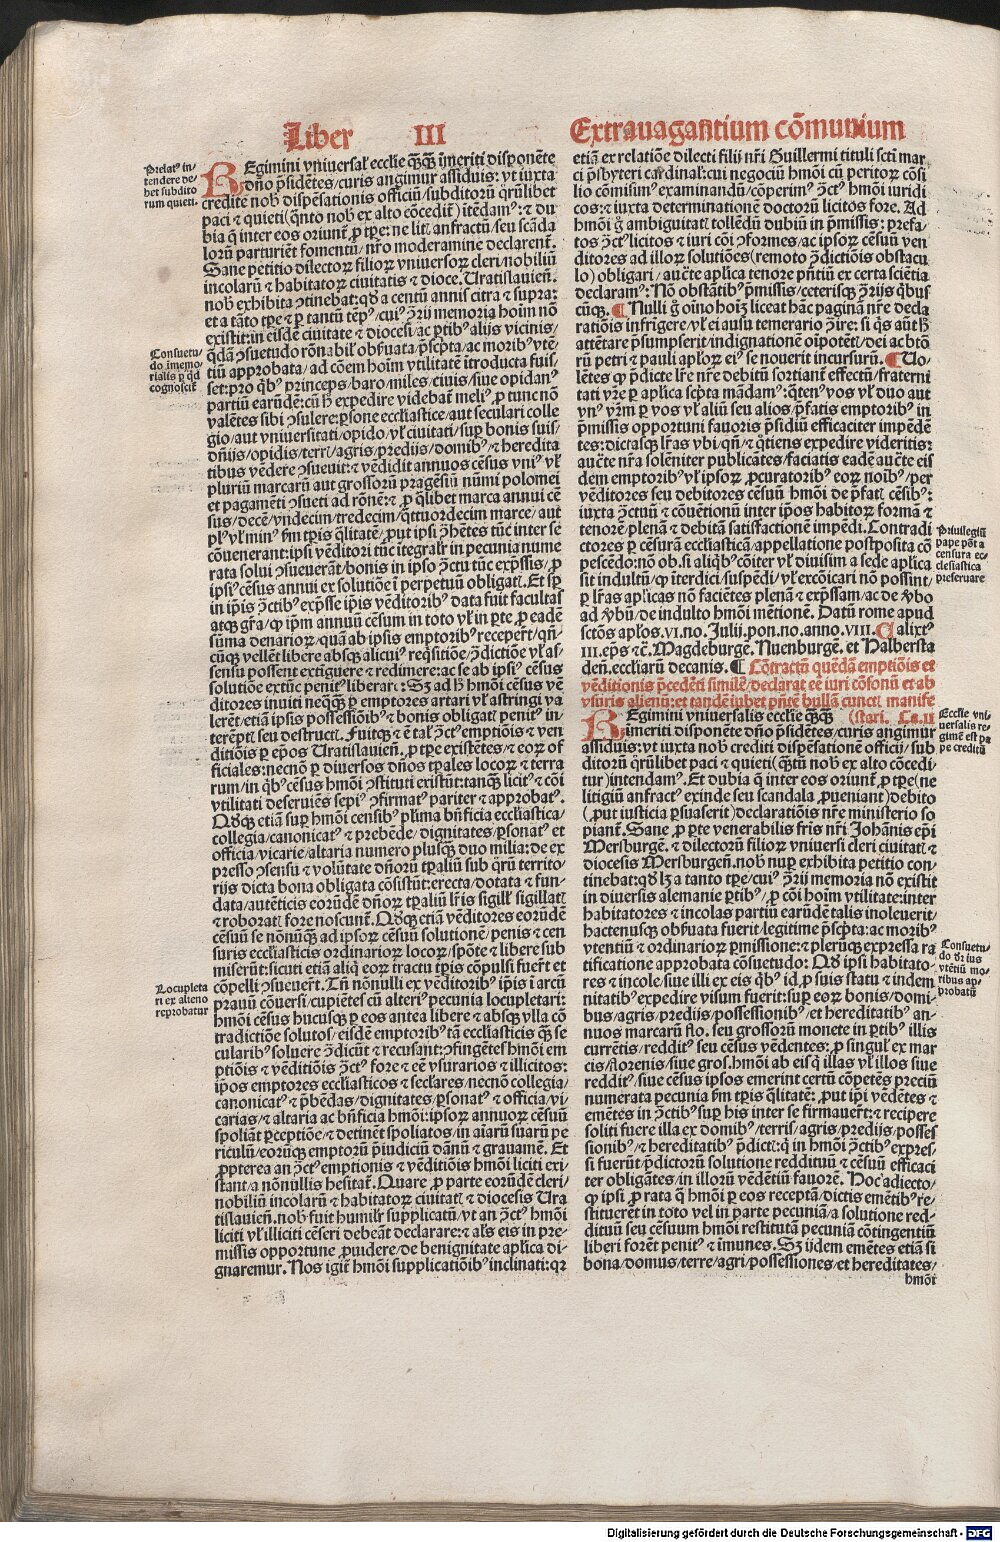 Liber III Extrauagantium cōmunium
Prelatꝰ in-
tendere de-
bet subdito
rum quieti.
REgimini vniuersal ecclie q̄q̄ īmeriti disponēte
dn̄o p̄sidētes/curis angimur assiduis: vt iuxta
credite nob dispēsationis officiū/subditorū q̄rūlibet
paci ⁊ quieti(q̄nto nob ex alto cōcedit) ītēdamꝰ: ⁊ du
bia q̄ inter eos oriunt̄ ꝓ tp̄e: ne lit anfractu/seu scāda
lorū parturiēt fomentū/nr̄o moderamine declarent̄.
Sane petitio dilectoꝝ filioꝝ vniuersoꝝ cleri/nobiliū
incolarū ⁊ habitatoꝝ ciuitatis ⁊ dioce. Uratislauieñ.
nob exhibita ꝯtinebat: qd a centū annis citra ⁊ supra:
et a tāto tp̄e ⁊ ꝑ tantū tēpꝰ/cuiꝰ ꝯrij memoria hoīm nō
existit: in eisdē ciuitate ⁊ diocesi/ac ꝑtibꝰ alijs vicinis/
Consuetu-
do īmemo-
rialis ꝑ qd
cognoscit̄
q̄dā ꝯsuetudo rōnabil obseruata/p̄scpta/ac moribꝰ vtē-
tiū approbata/ad cōem hoīm vtilitatē ītroducta fuis/
set: ꝓ q̄bꝰ princeps/baro/miles/ciuis/siue opidanꝰ
partiū earūdē: cū h expedire videbat̄ meliꝰ/ꝓ tunc nō
valētes sibi ꝯsulere: ꝑsone ecclīastice/aut seculari colle
gio/aut vniuersitati/opido/vl ciuitati/suꝑ bonis suis/
dn̄ijs/opidis/terr/agris/p̄redijs/domibꝰ/⁊ heredita
tibus vēdere ꝯsueuit: ⁊ vēdidit annuos cēsus vniꝰ vl
pluriū marcarū aut grossorū pragēsiū nūmi polomei
et pagamēti ꝯsueti ad rōnē: ⁊ ꝓ q̄libet marca annui cē
sus/decē/vndecim/tredecim/q̄ttuordecim marce/aut
plꝰ vl minꝰ ẜm tp̄is q̄litatē/ꝓut ipsi ꝯhētes tūc inter se
cōuenerant: ipsi vēditori tūc itegralr̄ in pecunia nume
rata solui ꝯsueuerāt/bonis in ipso ꝯctu tūc exp̄ssis/ꝓ
ipsiꝰ cēsus annui ex solutiōe ī perpetuū obligat. Et sꝑ
in ip̄is ꝯctibꝰ exp̄sse ip̄is vēditoribꝰ data fuit facultas
atq gr̄a/ꝙ ip̄m annuū cēsum in toto vl in ꝑte ꝓ eadē
sūma denarioꝝ/quā ab ipsis emptoribꝰ receper̄t/qn̄-
cūq vellēt libere absq alicuiꝰ req̄sitiōe/ꝯdictiōe vl as-
sensu possent extiguere ⁊ redimere: ac se ab ipsiꝰ cēsus
solutiōe extūc penitꝰ liberari: Sꝫ ad h hmōi cēsus vē
ditores inuiti neq̄q̄ ꝑ emptores artari vl astringi va
lerēt/etiā ipsis possessiōibꝰ ⁊ bonis obligat penitꝰ in-
terēpt seu destruct. Fuitq ⁊ ē tal ꝯctꝰ emptiōis ⁊ ven
ditiōis ꝑ ep̄os Uratislauieñ. ꝓ tp̄e existētes/⁊ eoꝝ of
ficiales: necnō ꝑ diuersos dn̄os tp̄ales locoꝝ ⁊ terra
rum/in q̄bꝰ cēsus hmōi ꝯstituti existūt: tanq licitꝰ ⁊ cōi
vtilitati deseruiēs sepiꝰ ꝯfirmatꝰ pariter ⁊ approbatꝰ.
Qdq etiā suꝑ hmōi censibꝰ plima bn̄ficia ecclīastica/
collegia/canonicatꝰ ⁊ prebēde/dignitates/ꝑsonatꝰ et
officia/vicarie/altaria numero plusq duo milia: de ex
presso ꝯsensu ⁊ volūtate dn̄orū tp̄aliū sub q̄rū territo-
rijs dicta bona obligata cōsistūt: erecta/dotata ⁊ fun-
data/autēticis eorūdē dn̄oꝝ tp̄aliū lr̄is sigill sigillat
⁊ roborat fore noscunt̄. Qdq etiā vēditores eorūdē
cēsuū se nōnūq ad ipsorꝝ cēsuū solutionē/penis ⁊ cen
suris ecclīasticis ordinarioꝝ locoꝝ/spōte ⁊ libere sub
miserūt: sicuti etiā aliq̄ eoꝝ tractu tp̄is cōpulsi fuer̄t et
Locupleta
ri ex alieno
reprobatur
cōpelli ꝯsueuer̄t. Tn̄ nōnulli ex vēditoribꝰ ip̄is ī arcū
prauū cōuersi/cupiētes cū alteriꝰ pecunia locupletari:
hmōi cēsus hucusq ꝑ eos antea libere ⁊ absq vlla cō
tradictiōe solutos/eisdē emptoribꝰ tā ecclīasticis q̄ se
cularibꝰ soluere ꝯdicūt ⁊ recusant: ꝯfingētes hmōi em
ptiōis ⁊ vēditiōis ꝯctꝰ fore ⁊ eē vsurarios ⁊ illicitos:
ip̄os emptores ecclīasticos ⁊ seclares/necnō collegia/
canonicatꝰ ⁊ p̄bēdas/dignitates/ꝑsonatꝰ ⁊ officia/vi
carias/⁊ altaria ac bn̄ficia hmōi: ipsoꝝ annuoꝝ cēsuū
spoliāt ꝑceptiōe/⁊ detinēt spoliatos/in aīarū suarū pe
riculū/eorūq emptorū p̄iudiciū dānū ⁊ grauamē. Et
ꝓpterea an ꝯctꝰ emptionis ⁊ vēditiōis hmōi liciti exi
stant/a nōnullis hesitat̄. Quare ꝓ parte eorūdē cleri/
nobiliū incolarū ⁊ habitatoꝝ ciuitat ⁊ diocesis Ura
tislauieñ. nob fuit humilr̄ supplicatū/vt an ꝯctꝰ hmōi
liciti vl illiciti cēseri debeāt declarare: ⁊ als eis in pre-
missis opportune ꝓuidere/de benignitate aplica di-
gnaremur. Nos igit̄ hmōi supplicatiōibꝰ inclinati: qꝛ
etiā ex relatiōe dilecti filij nr̄i Guillermi tituli scti mar
ci p̄sbyteri cardinal: cui negociū hmōi cū peritoꝝ cōsi
lio cōmisimꝰ examinandū/cōperimꝰ ꝯctꝰ hmōi iuridi
cos: ⁊ iuxta determinationē doctorū licitos fore. Ad
hmōi g̊ ambiguitat tollēdū dubiū in p̄missis: prefa-
tos ꝯctꝰ licitos ⁊ iuri cōi ꝯformes/ac ipsoꝝ cēsuū ven
ditores ad illoꝝ solutiōes(remoto ꝯdictiōis obstacu
lo) obligari/auēte aplica tenore pn̄tiū ex certa sciētia
declaramꝰ: Nō obstātibꝰ p̄missis/ceterisq ꝯrijs q̄bus
cūq. ¶ Nulli g̊ oīno hoīꝫ liceat hāc paginā nr̄e decla
ratiōis infrigere/vl ei ausu temerario ꝯire: si q̄s aūt h
attētare p̄sumpserit/indignationē oīpotēt/dei ac btō
rū petri ⁊ pauli aploꝝ eiꝰ se nouerit incursurū. ¶ Uo-
lētes ꝙ p̄dicte lr̄e nr̄e debitū sortiant̄ effectū/fraterni
tati vr̄e ꝑ aplica scpta mādamꝰ: q̄tenꝰ vos vl duo aut
vnꝰ vr̄m ꝑ vos vl aliū seu alios/p̄fatis emptoribꝰ in
p̄missis opportuni fauoris p̄sidiū efficaciter impēdē
tes: dictasq lr̄as vbi/qn̄ ⁊ q̄tiens expedire videritis:
auēte nr̄a solēniter publicātes/faciatis eadē auēte eis
dem emptoribꝰ vl ipsoꝝ ꝓcuratoribꝰ eoꝝ noībꝰ/per
vēditores seu debitores cēsuū hmōi de p̄fat cēsibꝰ:
iuxta ꝯctuū ⁊ cōuētionū inter ip̄os habitoꝝ formā ⁊
tenorē/plenā ⁊ debitā satisfactionē impēdi. Contradi
ctores ꝑ cēsurā ecclīasticā/appellatione postposita cō
pescēdo: nō ob. si aliq̄bꝰ cōiter vl diuisim a sede aplica
sit indultū/ꝙ īterdici/suspēdi/vl excōicari nō possint/
ꝑ lr̄as aplicas nō faciētes plenā ⁊ exp̄ssam/ac de ꝟbo
ad ꝟbū/de indulto hmōi mētionē. Datū rome apud
Priuilegiū
pape pōt a
censura ec-
clesiastica
preseruare
sctōs aplos. vi. no. Julij. pon. no. anno. VIII. Calixtꝰ
III. ep̄s ⁊c̄. Magdeburgē. Nuenburgē. et Halbersta
deñ. eccliarū decanis. ¶ Cōtractū quēdā emptiōis et
vēditionis p̄cedēti similē/declarat eē iuri cōsonū et ab
vsuris alienū: et tandē iubet pn̄te bullā cunct manife
(stari. Ca. II
REgimini vniuersalis ecclie q̄q̄
īmeriti disponēte dn̄o p̄sidētes/curis angimur
assiduis: vt iuxta nob crediti dispēsationē officij/sub
Ecclie vni-
uersalis re-
gimē est pa
pe creditū
ditorū q̄rūlibet paci ⁊ quieti(q̄tū nob ex alto cōcedi
tur)intendamꝰ. Et dubia q̄ inter eos oriunt̄ ꝓ tp̄e(ne
litigiū anfractꝰ exinde seu scandala ꝓueniant)debito
(ꝓut iusticia ꝑsuaserit)declaratiōis nr̄e ministerio so
piant̄. Sane ꝓ ꝑte venerabilis fr̄is nr̄i Johānis ep̄i
Mersburgē. ⁊ dilectorū filioꝝ vniuersi cleri ciuitat ⁊
diocesis Mersburgeñ. nob nuꝑ exhibita petitio con-
tinebat: qd lꝫ a tanto tp̄e/cuiꝰ ꝯrij memoria nō existit
in diuersis alemanie ꝑtibꝰ/ꝓ cōi hoīm vtilitate: inter
habitatores ⁊ incolas partiū earūdē talis inoleuerit/
hactenusq obseruata fuerit/legitime p̄scpta: ac moribꝰ
vtentiū ⁊ ordinarioꝝ ꝑmissione: ⁊ plerūq expressa ra
tificatione approbata cōsuetudo: Qd ipsi habitato-
res ⁊ incole/siue illi ex eis q̄bꝰ id/ꝓ suis statu ⁊ indem
Consuetu-
do dr̄ ius
vtētiū mo-
ribus ap-
probatū
nitatibꝰ expedire visum fuerit: suꝑ eoꝝ bonis/domi-
bus/agris/p̄redijs/possessionibꝰ/et hereditatibꝰ an-
nuos marcarū flo. seu grossorū monete in ꝑtibꝰ illis
currētis/redditꝰ seu cēsus vēdentes: ꝓ singul ex mar
cis/florenis/siue gros. hmōi ab eisq̄ illas vl illos siue
redditꝰ/siue cēsus ipsos emerint certū cōpetēs preciū
numerata pecunia ẜm tp̄is q̄litatē: ꝓut ip̄i vēdētes ⁊
emētes in ꝯctibꝰ suꝑ his inter se firmauer̄t: ⁊ recipere
soliti fuere illa ex domibꝰ/terris/agris/p̄redijs/posses
sionibꝰ/⁊ hereditatibꝰ p̄dict: q̄ in hmōi ꝯctibꝰ expres/
si fuerūt/p̄dictorū solutione reddituū ⁊ cēsuū efficaci
ter obligātes/in illorū vēdētiū fauorē. Hoc adiecto/
ꝙ ipsi ꝓ rata q̄ hmōi ꝑ eos receptā/dictis emētibꝰ re-
stituerēt in toto vel in parte pecuniā/a solutione red-
dituū seu cēsuum hmōi restitutā pecuniā cōtingentiū
liberi forēt penitꝰ ⁊ īmunes. Sꝫ ijdem emētes etiā si
bona/domus/terre/agri/possessiones/et hereditates/
hmōi
Digitalisierung gefördert durch die Deutsche Forschungsgemeinschaft - DFG